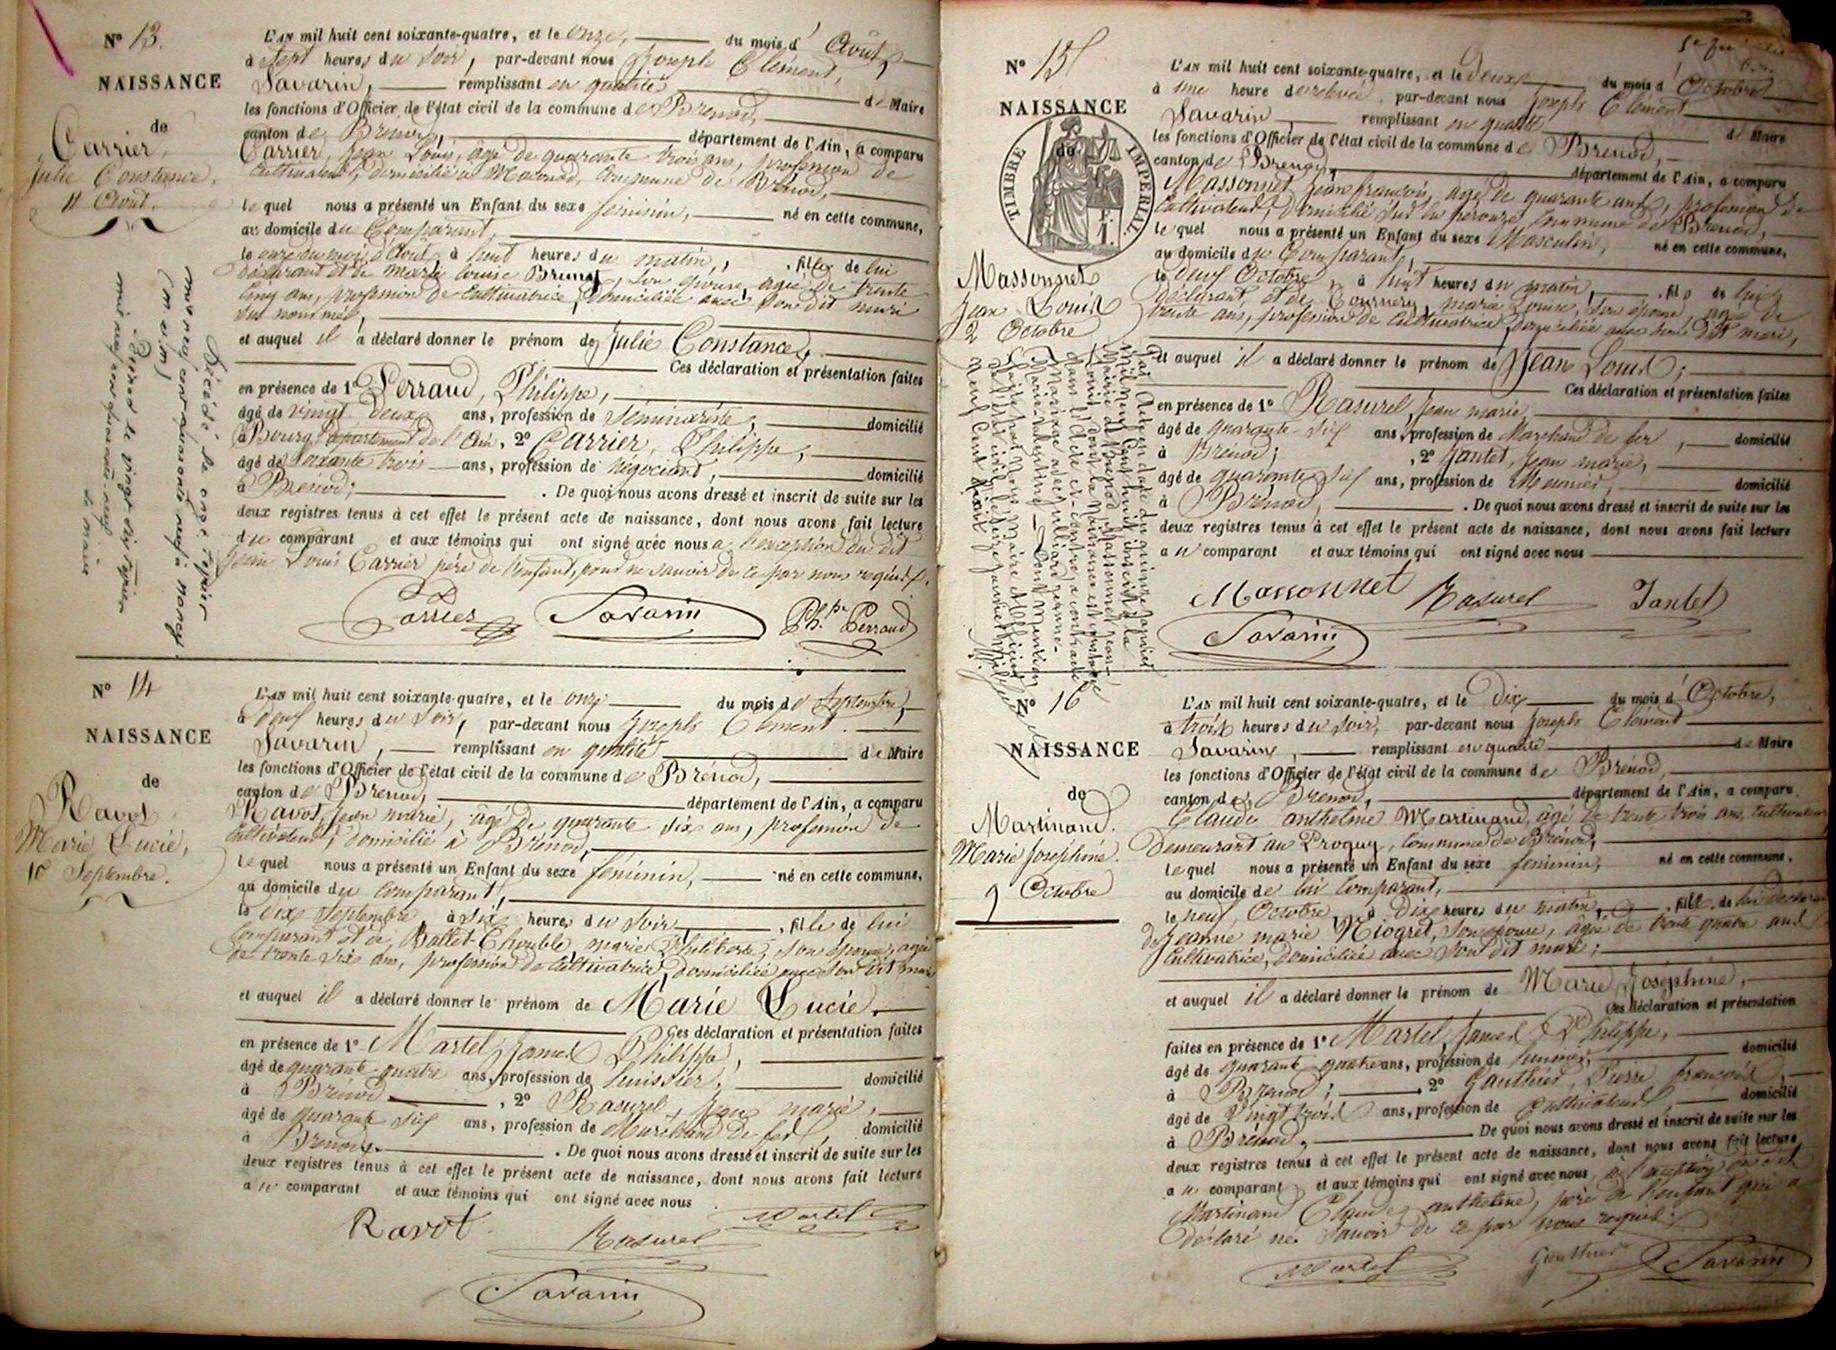 N° 13.
NAISSANCE
de
Carrier,
Julie Constance,
11 Août.
L'AN mil huit cent soixante-quatre, et le onze, du mois d' Août,
à sept heures du soir, par-devant nous Joseph Clément,
Savarin, remplissant en qualité de Maire
les fonctions d'Officier de l'état civil de la commune de Brenod,
canton de Brenod, département de l'Ain, a comparu
Carrier, Jean Louis, âgé de quarante trois ans, profession de
cultivateur, domicilié à Macconod, commune de Brénod,
lequel nous a présenté un Enfant du sexe féminin, né en cette commune,
au domicile du Comparant,
le onze du mois d'Août, à huit heures du matin, fille de lui
déclarant et de Marie Louise Brunet, son épouse, agée de trente
cinq ans, profession de Cultivatrice, domiciliée avec son dit mari
sus nommé,
et auquel il a déclaré donner le prénom de Julie Constance,
Ces déclaration et présentation faites
en présence de 1° Perraud, Philippe,
âgé de vingt deux ans, profession de Séminariste, domicilié
à Bourg département de l'Ain, 2° Carrier, Philippe,
âgé de soixante trois ans, profession de négociant, domicilié
à Brenod; . De quoi nous avons dressé et inscrit de suite sur les
deux registres tenus à cet effet le présent acte de naissance, dont nous avons fait lecture
du comparant et aux témoins qui ont signé avec nous a l'exception du dit
Jean Louis Carrier père de l'enfant, pour ne savoir de ce par nous requis.
Carrier Savarin Ph. Perraud
Décédée le onze
mil neuf cent quarante neuf à Nancy
(M et M)
Brénod le vingt six
mil neuf cent quarante-neuf
le maire
N° 14
NAISSANCE
de
Ravot
Marie Lucie,
10 Septembre.
L'AN mil huit cent soixante-quatre, et le onze du mois de Septembre,
à neuf heures du soir, par-devant nous Joseph Clément
Savarin, remplissant en qualité de Maire
les fonctions d'Officier de l'état civil de la commune de Brénod,
canton de Brenod, département de l'Ain, a comparu
Ravot, Jean marie, âgé de quarante six ans, profession de
Cultivateur, domicilié à Brénod,
lequel nous a présenté un Enfant du sexe féminin, né en cette commune,
au domicile du comparant,
le dix Septembre, à six heures du soir, fille de lui
Comparant et de Ballet Chouble, marie Philiberte, son épouse, agée
de trente six ans, profession de cultivatrice, domiciliée avec son dit mari
et auquel il a déclaré donner le prénom de Marie Lucie.
Ces déclaration et présentation faites
en présence de 1° Martel, James Philippe,
âgé de quarante-quatre ans, profession de huissier, domicilié
à Brénod, 2° Rasurel, Jean marie,
âgé de quarante six ans, profession de Marchand de fer, domicilié
à Brenod, . De quoi nous avons dressé et inscrit de suite sur les
deux registres tenus à cet effet le présent acte de naissance, dont nous avons fait lecture
au comparant et aux témoins qui ont signé avec nous
Ravot. Rasurel Martel
Savarin
N° 15
NAISSANCE
de
TIMBRE IMPÉRIAL
Massonnet
Jean Louis
2 Octobre
L'AN mil huit cent soixante-quatre, et le deux du mois d' Octobre
à une heure de relevée, par-devant nous Joseph Clément
Savarin, remplissant en qualité de Maire
les fonctions d'Officier de l'état civil de la commune de Brenod,
canton de Brenod, département de l'Ain, a comparu
Massonnet, Jean françois, agé de quarante ans, profession de
Cultivateur, Domicilié commune de Brenod,
lequel nous a présenté un Enfant du sexe Masculin, né en cette commune,
au domicile du Comparant,
le deux Octobre, à huit heures du matin, fils de lui
déclarant, et de marie Louise, son épouse, agée de
trente ans, profession de cultivatrice, domiciliée avec son dit mari,
et auquel il a déclaré donner le prénom de Jean Louis;
Ces déclaration et présentation faites
en présence de 1° Rasurel, Jean marie,
âgé de quarante-six ans, profession de Marchand de fer, domicilié
à Brénod, 2° Jantet, Jean marie,
âgé de quarante six ans, profession de Meunier, domicilié
à Brénod, . De quoi nous avons dressé et inscrit de suite sur les
deux registres tenus à cet effet le présent acte de naissance, dont nous avons fait lecture
au comparant et aux témoins qui ont signé avec nous
Massonnet Rasurel Jantet
Savarin
N° 16
NAISSANCE
de
Martinand.
Marie Joséphine.
9 Octobre
L'AN mil huit cent soixante-quatre, et le dix du mois d' Octobre,
à trois heures du soir, par-devant nous Joseph Clément
Savarin, remplissant en qualité de Maire
les fonctions d'Officier de l'état civil de la commune de Brénod,
canton de Brenod, département de l'Ain, a comparu
Claude anthelme Martinand, agé de trente trois ans, Cultivateur
demeurant au Proguy, commune de Brénod,
lequel nous a présenté un Enfant du sexe féminin, né en cette commune,
au domicile de lui comparant,
le neuf Octobre, à Dix heures du matin, fille de lui declarant
de Jeanne marie Niogret, son épouse, agée de trente quatre ans
Cultivatrice, domiciliée avec son dit mari;
et auquel il a déclaré donner le prénom de Marie Joséphine,
Ces déclaration et présentation
faites en présence de 1° Martel James Philippe,
âgé de quarante quatre ans, profession de huissier, domicilié
à Brenod; 2° Gauthier, Pierre françois,
âgé de Vingt trois ans, profession de Cultivateur, domicilié
à Brénod, De quoi nous avons dressé et inscrit de suite sur les
deux registres tenus à cet effet le présent acte de naissance, dont nous avons fait lecture
au comparant et aux témoins qui ont signé avec nous à l'exception du dit
Martinand Claude anthelme, père de l'enfant qui a
déclaré ne savoir de ce par nous requis.
Martel Gauthier Savarin